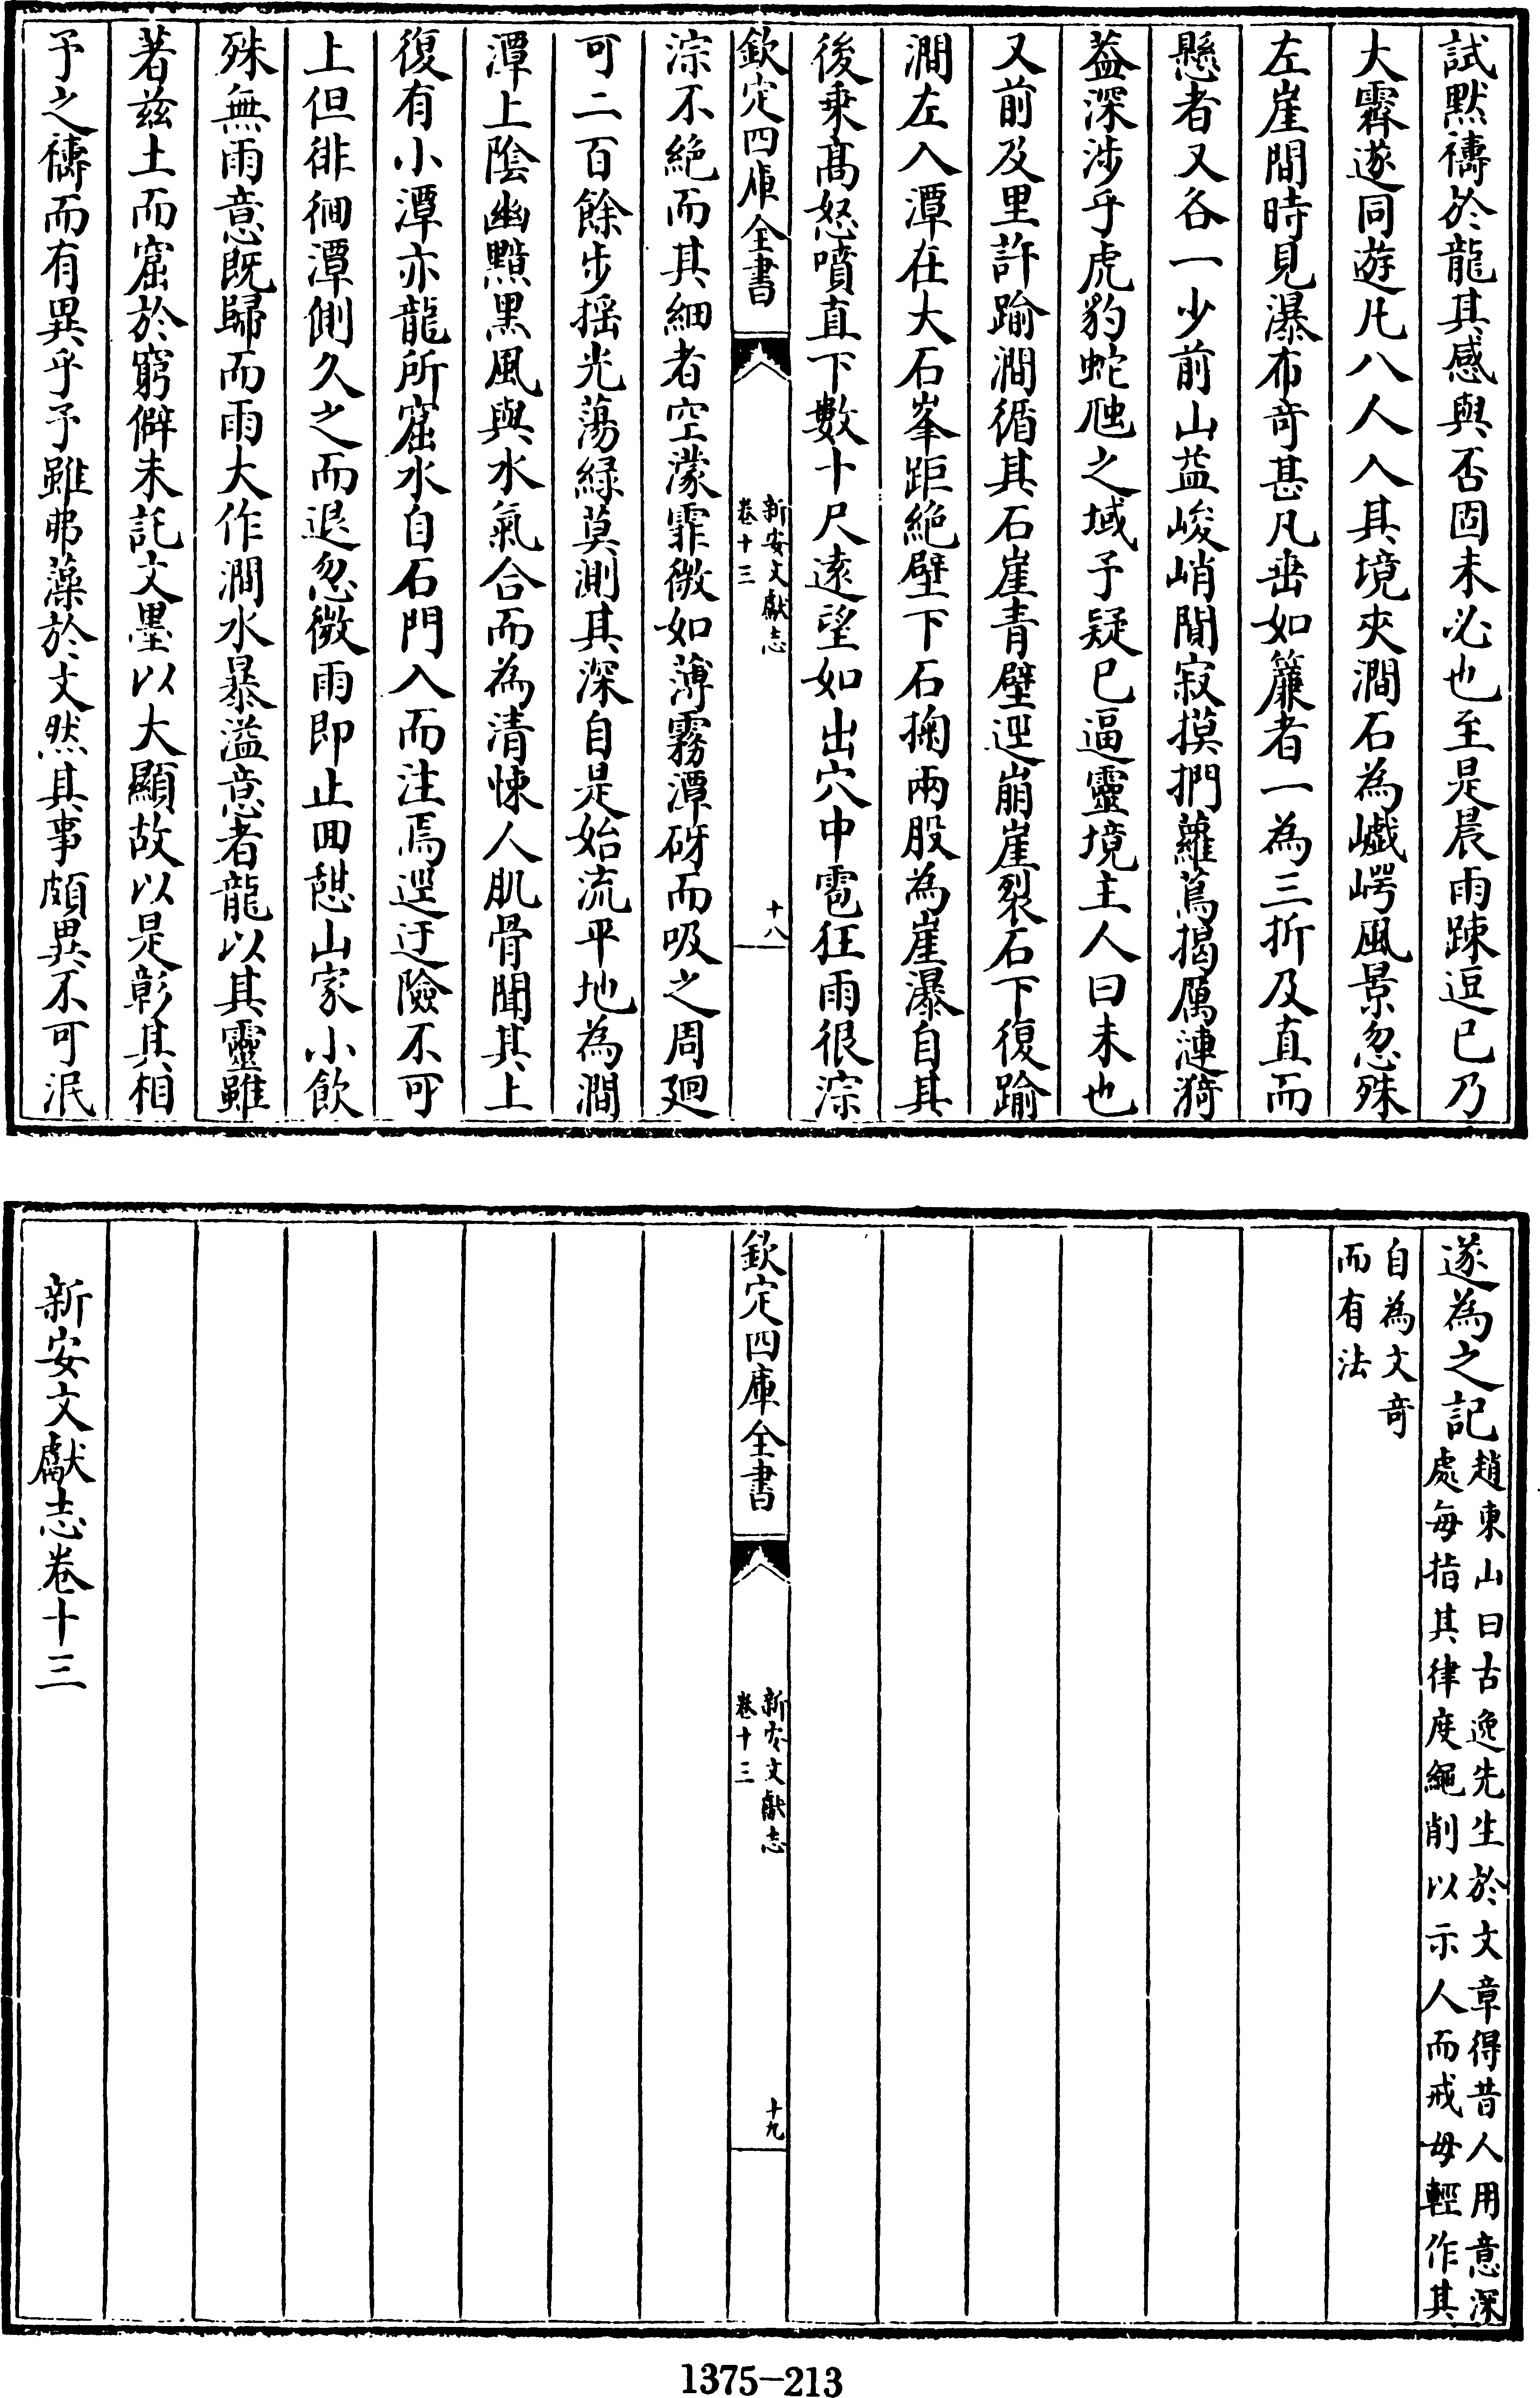 試黙禱於龍其感與否固未必也至是晨雨踈逗已乃
大霽遂同遊凡八人入其境夾澗石為巇崿風景忽殊
左崖間時見瀑布竒甚凡垂如簾者一為三折及直而
懸者又各一少前山益峻峭閴寂摸捫蘿蔦揭厲漣漪
葢深涉乎虎豹蛇虺之域予疑已逼靈境主人曰未也
又前及里許踰澗循其石崖青壁逕崩崖裂石下復踰
澗左入潭在大石峯距絶壁下石掬兩股為崖瀑自其
後乗髙怒噴直下數十尺逺望如出穴中雹狂雨很淙
欽定四庫全書
新安文獻志
卷十三
十八
淙不絶而其細者空濛霏微如薄霧潭砑而吸之周廻
可二百餘步揺光蕩緑莫測其深自是始流平地為澗
潭上陰幽黮黑風與水氣合而為清悚人肌骨聞其上
復有小潭亦龍所窟水自石門入而注焉逕迂險不可
上但徘徊潭側久之而退忽微雨即止囬憇山家小飲
殊無雨意既歸而雨大作澗水暴溢意者龍以其靈雖
著兹土而窟於窮僻未託文墨以大顯故以是彰其相
予之禱而有異乎予雖弗藻於文然其事頗異不可泯
遂為之記
趙東山曰古逸先生於文章得昔人用意深
處每指其律度繩削以示人而戒毋輕作其
自為文竒
而有法
欽定四庫全書
新安文獻志
卷十三
十九
新安文獻志卷十三
1375-213